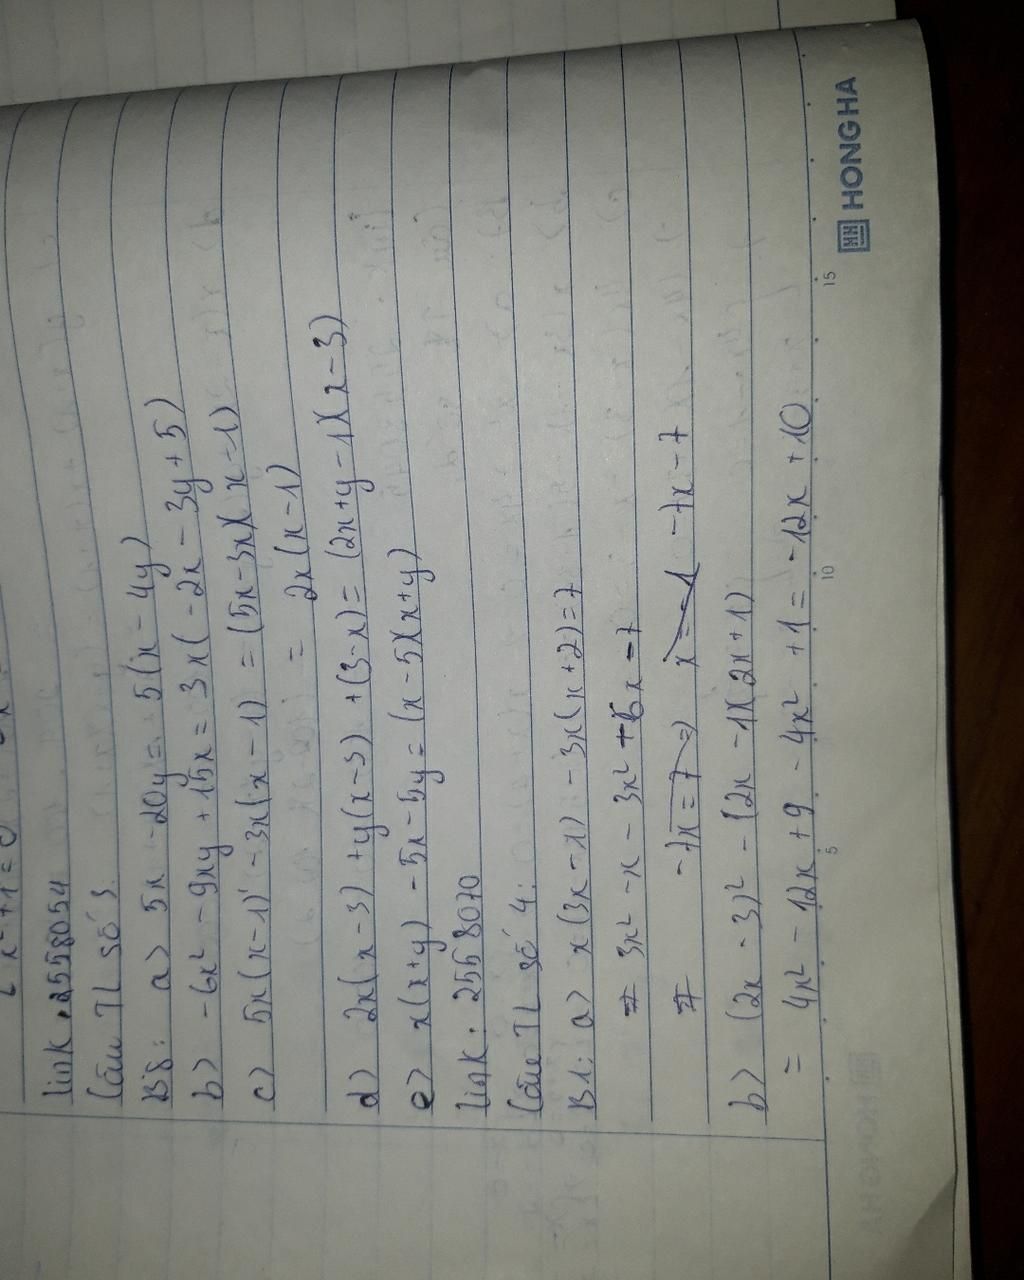 x² + 1 = 0
link . 2558054
Câu TL số 3:
B8: a> 5x - 20y = 5(x - 4y)
b> -6x² - 9xy + 15x = 3x(-2x - 3y + 5)
c> 5x(x-1) - 3x(x-1) = (5x-3x)(x-1)
= 2x(x-1)
d> 2x(x-3) + y(x-3) + (3-x) = (2x+y-1)(x-3)
e> x(x+y) - 5x - 5y = (x-5)(x+y)
link . 2558070
Câu TL số 4:
B1: a> x(3x - 1) - 3x(x+2) = 7
3x² - x - 3x² + 6x - 7
-7x = 7 => x = -1 -7x - 7
b> (2x - 3)² - (2x - 1)(2x + 1)
= 4x² - 12x + 9 - 4x² + 1 = -12x + 10
5 10 15
HONG HA